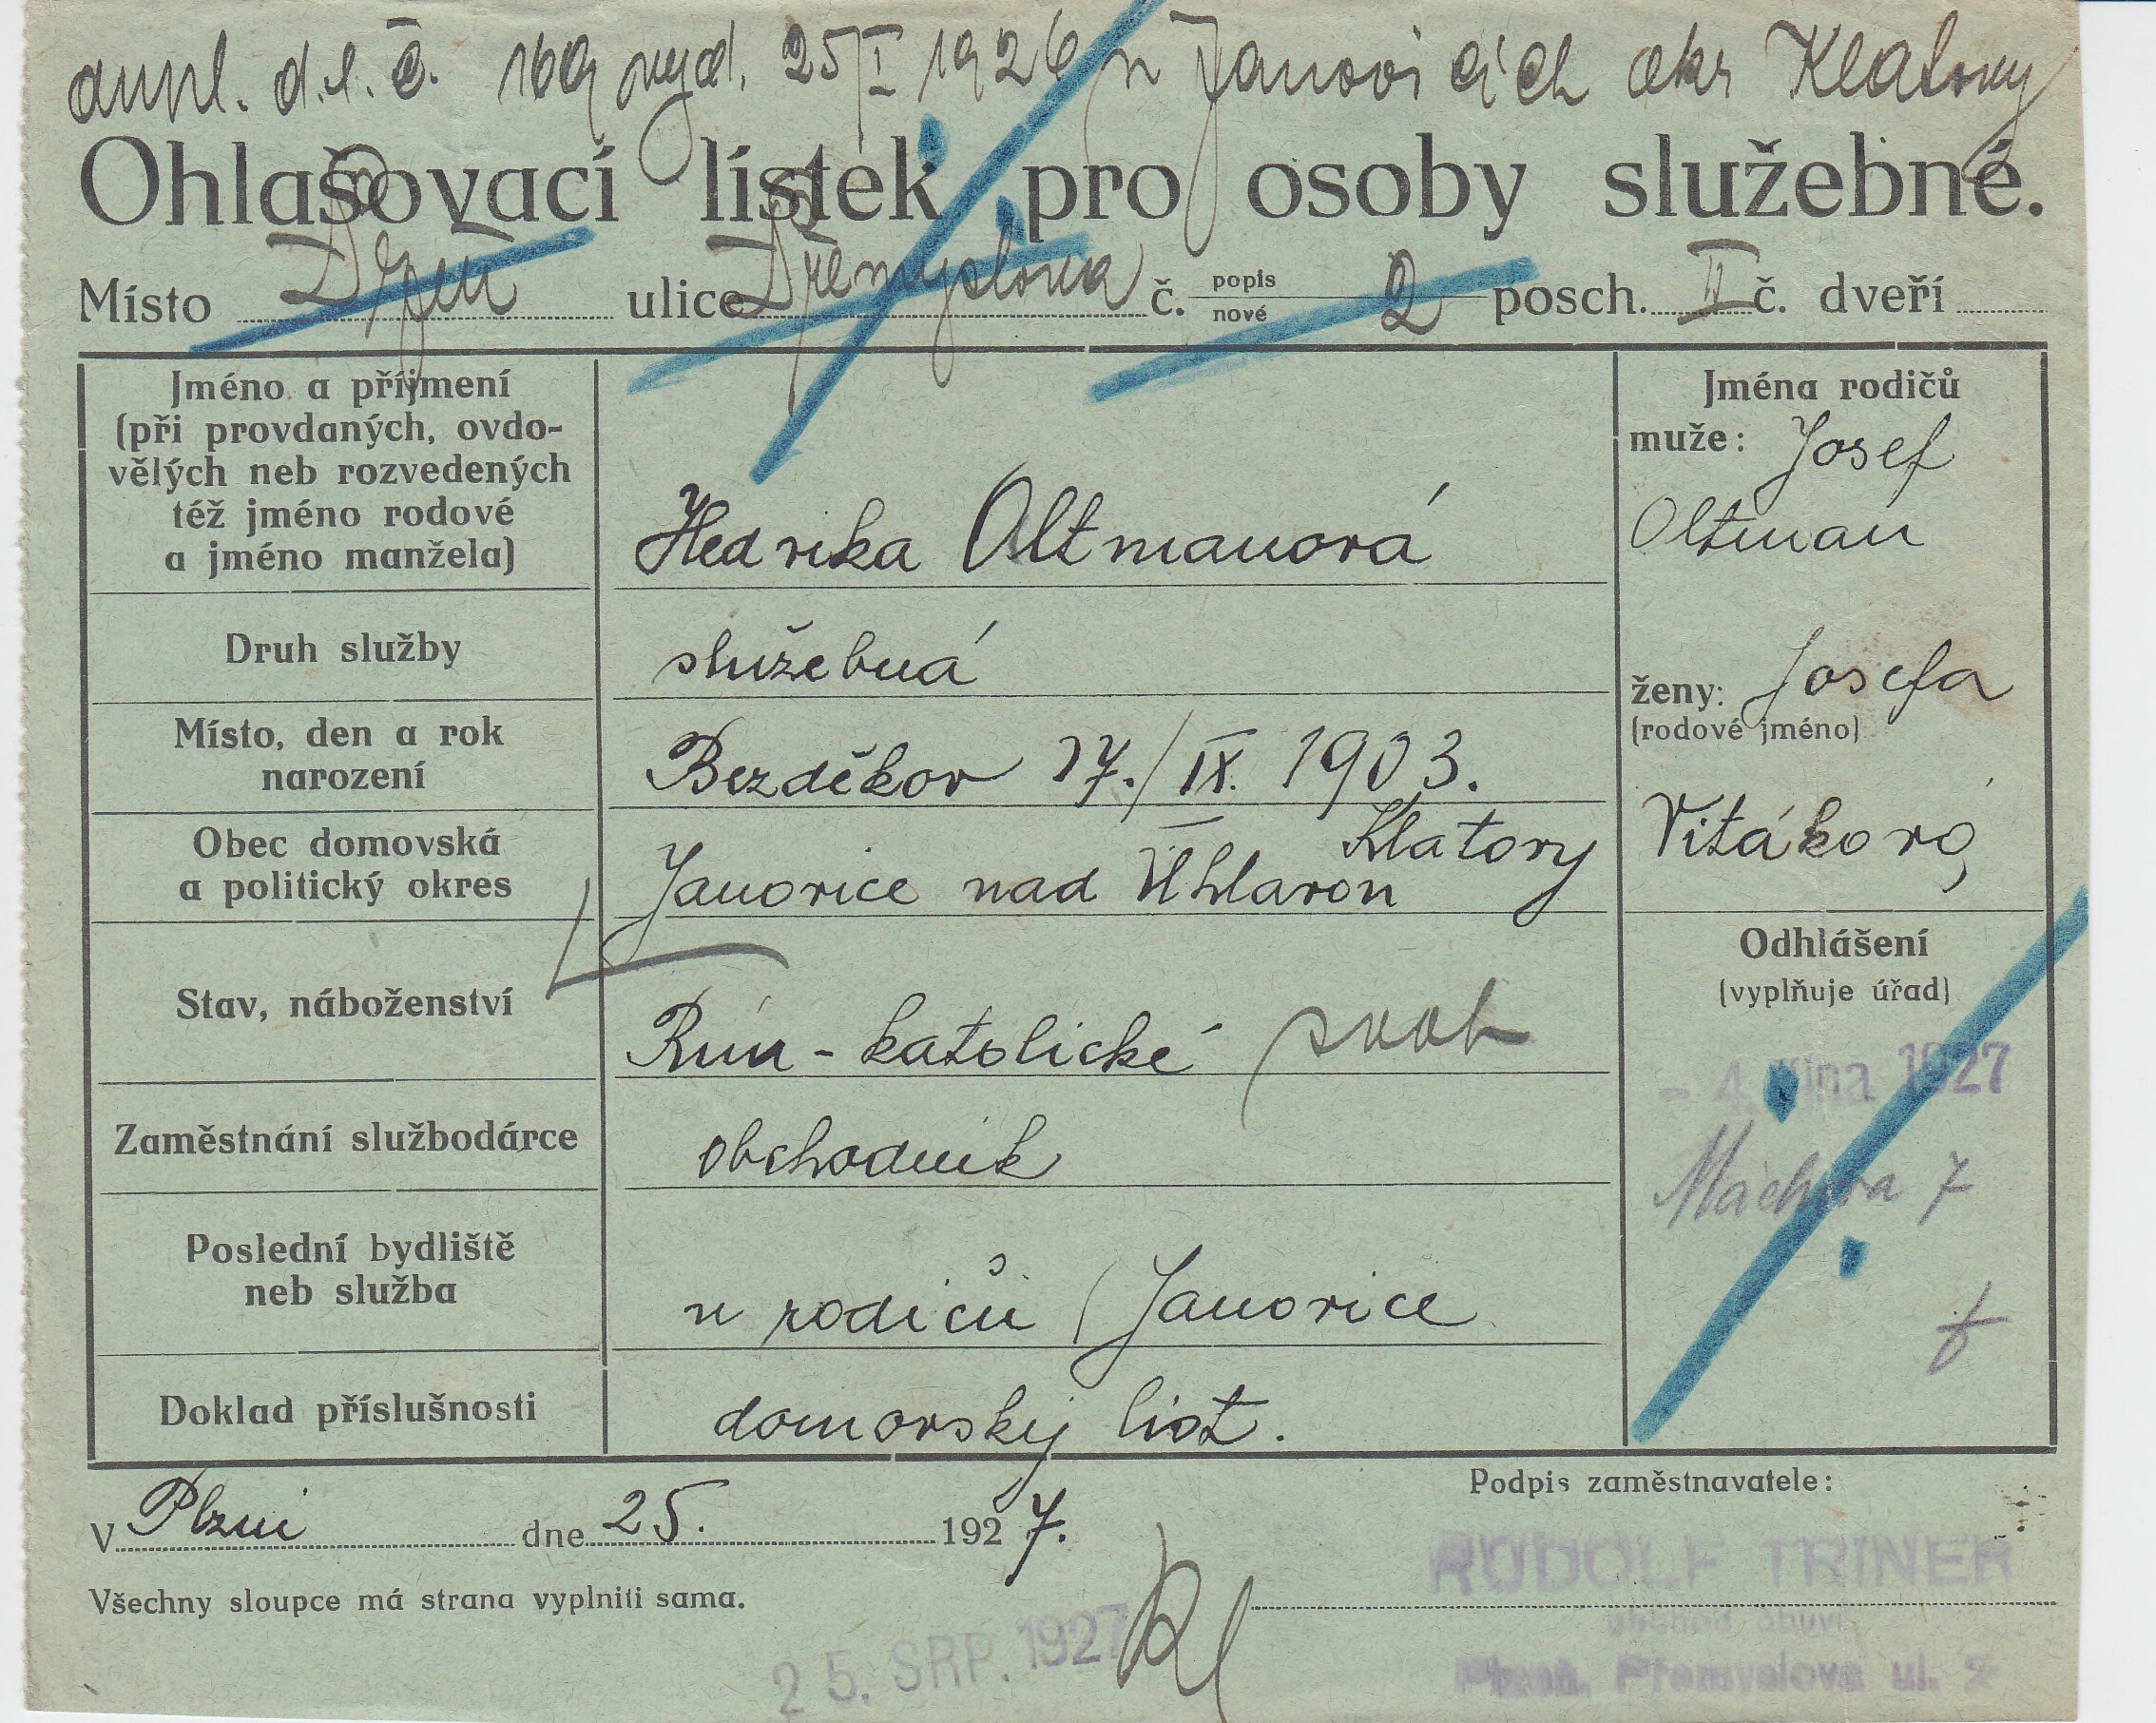 dupl. d.l.č. 169 vyd. 25/I 1926 v Janovicích okr Klatovy
Ohlašovací lístek pro osoby služebné.
Místo Plzeň ulice Přemyslova č. popis nové 2 posch. II č. dveří
Jméno a příjmení
(při provdaných, ovdo-
vělých neb rozvedených
též jméno rodové
a jméno manžela)
Hedvika Oltmanová
Jména rodičů
muže: Josef
Oltman
Druh služby
služebná
ženy: Josefa
(rodové jméno)
Vitáková
Místo, den a rok
narození
Bezděkov 17./IX. 1903.
Obec domovská
a politický okres
Klatovy
Janovice nad Úhlavou
Stav, náboženství
Řím - katolické svob
Odhlášení
(vyplňuje úřad)
- 4. října 1927
Máchova 7
Zaměstnání službodárce
obchodník
Poslední bydliště
neb služba
u rodičů / Janovice
Doklad příslušnosti
domovský list.
V Plzni dne 25. 1927.
Podpis zaměstnavatele:
RUDOLF TRINER
obchod obuví
Plzeň, Přemyslova ul. 2
Všechny sloupce má strana vyplniti sama.
25. SRP. 1927